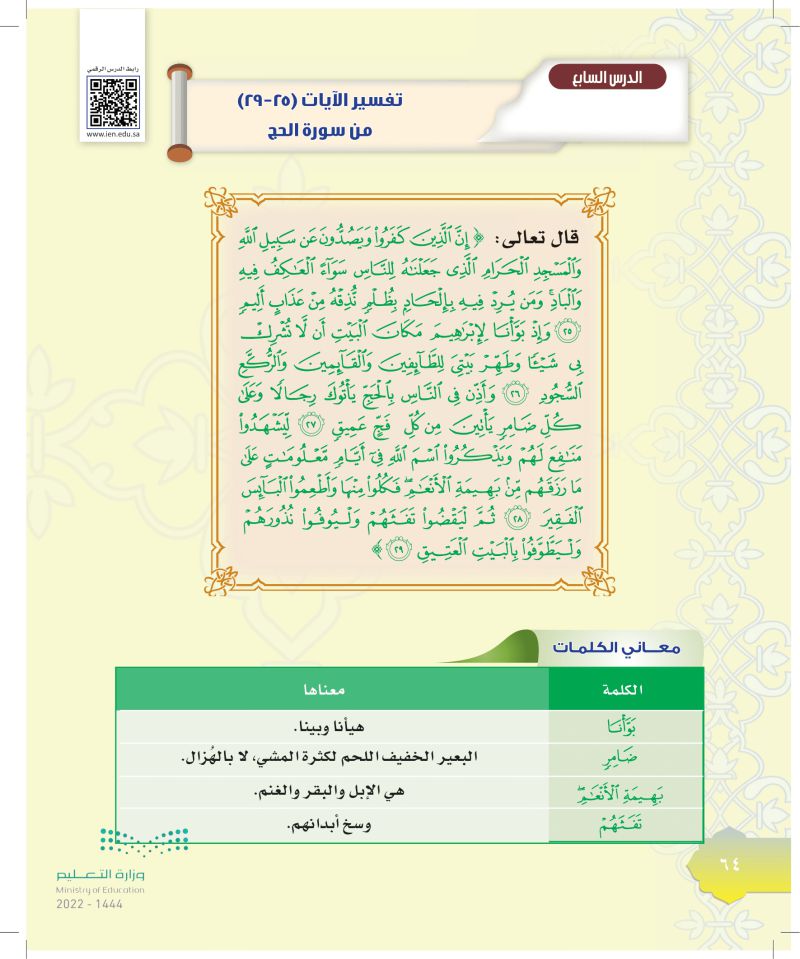 رابط الدرس الرقمي
www.ien.edu.sa
الدرس السابع
تفسير الآيات (٢٥-٢٩)
من سورة الحج
قال تعالى: ﴿ إِنَّ ٱلَّذِينَ كَفَرُوا۟ وَيَصُدُّونَ عَن سَبِيلِ ٱللَّهِ
وَٱلْمَسْجِدِ ٱلْحَرَامِ ٱلَّذِى جَعَلْنَٰهُ لِلنَّاسِ سَوَآءً ٱلْعَٰكِفُ فِيهِ
وَٱلْبَادِ ۚ وَمَن يُرِدْ فِيهِ بِإِلْحَادٍۭ بِظُلْمٍ نُّذِقْهُ مِنْ عَذَابٍ أَلِيمٍ
٢٥ وَإِذْ بَوَّأْنَا لِإِبْرَٰهِيمَ مَكَانَ ٱلْبَيْتِ أَن لَّا تُشْرِكْ
بِى شَيْـًٔا وَطَهِّرْ بَيْتِىَ لِلطَّآئِفِينَ وَٱلْقَآئِمِينَ وَٱلرُّكَّعِ
ٱلسُّجُودِ ٢٦ وَأَذِّن فِى ٱلنَّاسِ بِٱلْحَجِّ يَأْتُوكَ رِجَالًا وَعَلَىٰ
كُلِّ ضَامِرٍ يَأْتِينَ مِن كُلِّ فَجٍّ عَمِيقٍ ٢٧ لِّيَشْهَدُوا۟
مَنَٰفِعَ لَهُمْ وَيَذْكُرُوا۟ ٱسْمَ ٱللَّهِ فِىٓ أَيَّامٍ مَّعْلُومَٰتٍ عَلَىٰ
مَا رَزَقَهُم مِّنۢ بَهِيمَةِ ٱلْأَنْعَٰمِ ۖ فَكُلُوا۟ مِنْهَا وَأَطْعِمُوا۟ ٱلْبَآئِسَ
ٱلْفَقِيرَ ٢٨ ثُمَّ لْيَقْضُوا۟ تَفَثَهُمْ وَلْيُوفُوا۟ نُذُورَهُمْ
وَلْيَطَّوَّفُوا۟ بِٱلْبَيْتِ ٱلْعَتِيقِ ٢٩ ﴾
معـــاني الكلمـات
الكلمة معناها
بَوَّأْنَا هيأنا وبينا.
ضَامِرٍ البعير الخفيف اللحم لكثرة المشي، لا بالهُزال.
بَهِيمَةِ ٱلْأَنْعَٰمِ ۖ هي الإبل والبقر والغنم.
تَفَثَهُمْ وسخ أبدانهم.
وزارة التعـــليم
Ministry of Education
2022 - 1444
٦٤